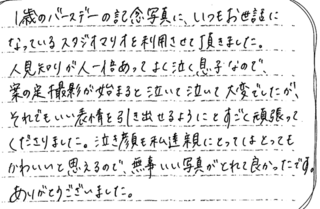 1歳のバースデーの記念写真に、いつもお世話に
なっているスタジオマリオを利用させて頂きました。
人見知りが人一倍あってよく泣く息子なので、
案の定撮影が始まると泣いて泣いて大変でしたが、
それでもいい表情を引き出せるようにとすごく頑張って
くださりました。泣き顔も私達親にとってはとっても
かわいいと思えるので、無事いい写真がとれて良かったです。
ありがとうございました。